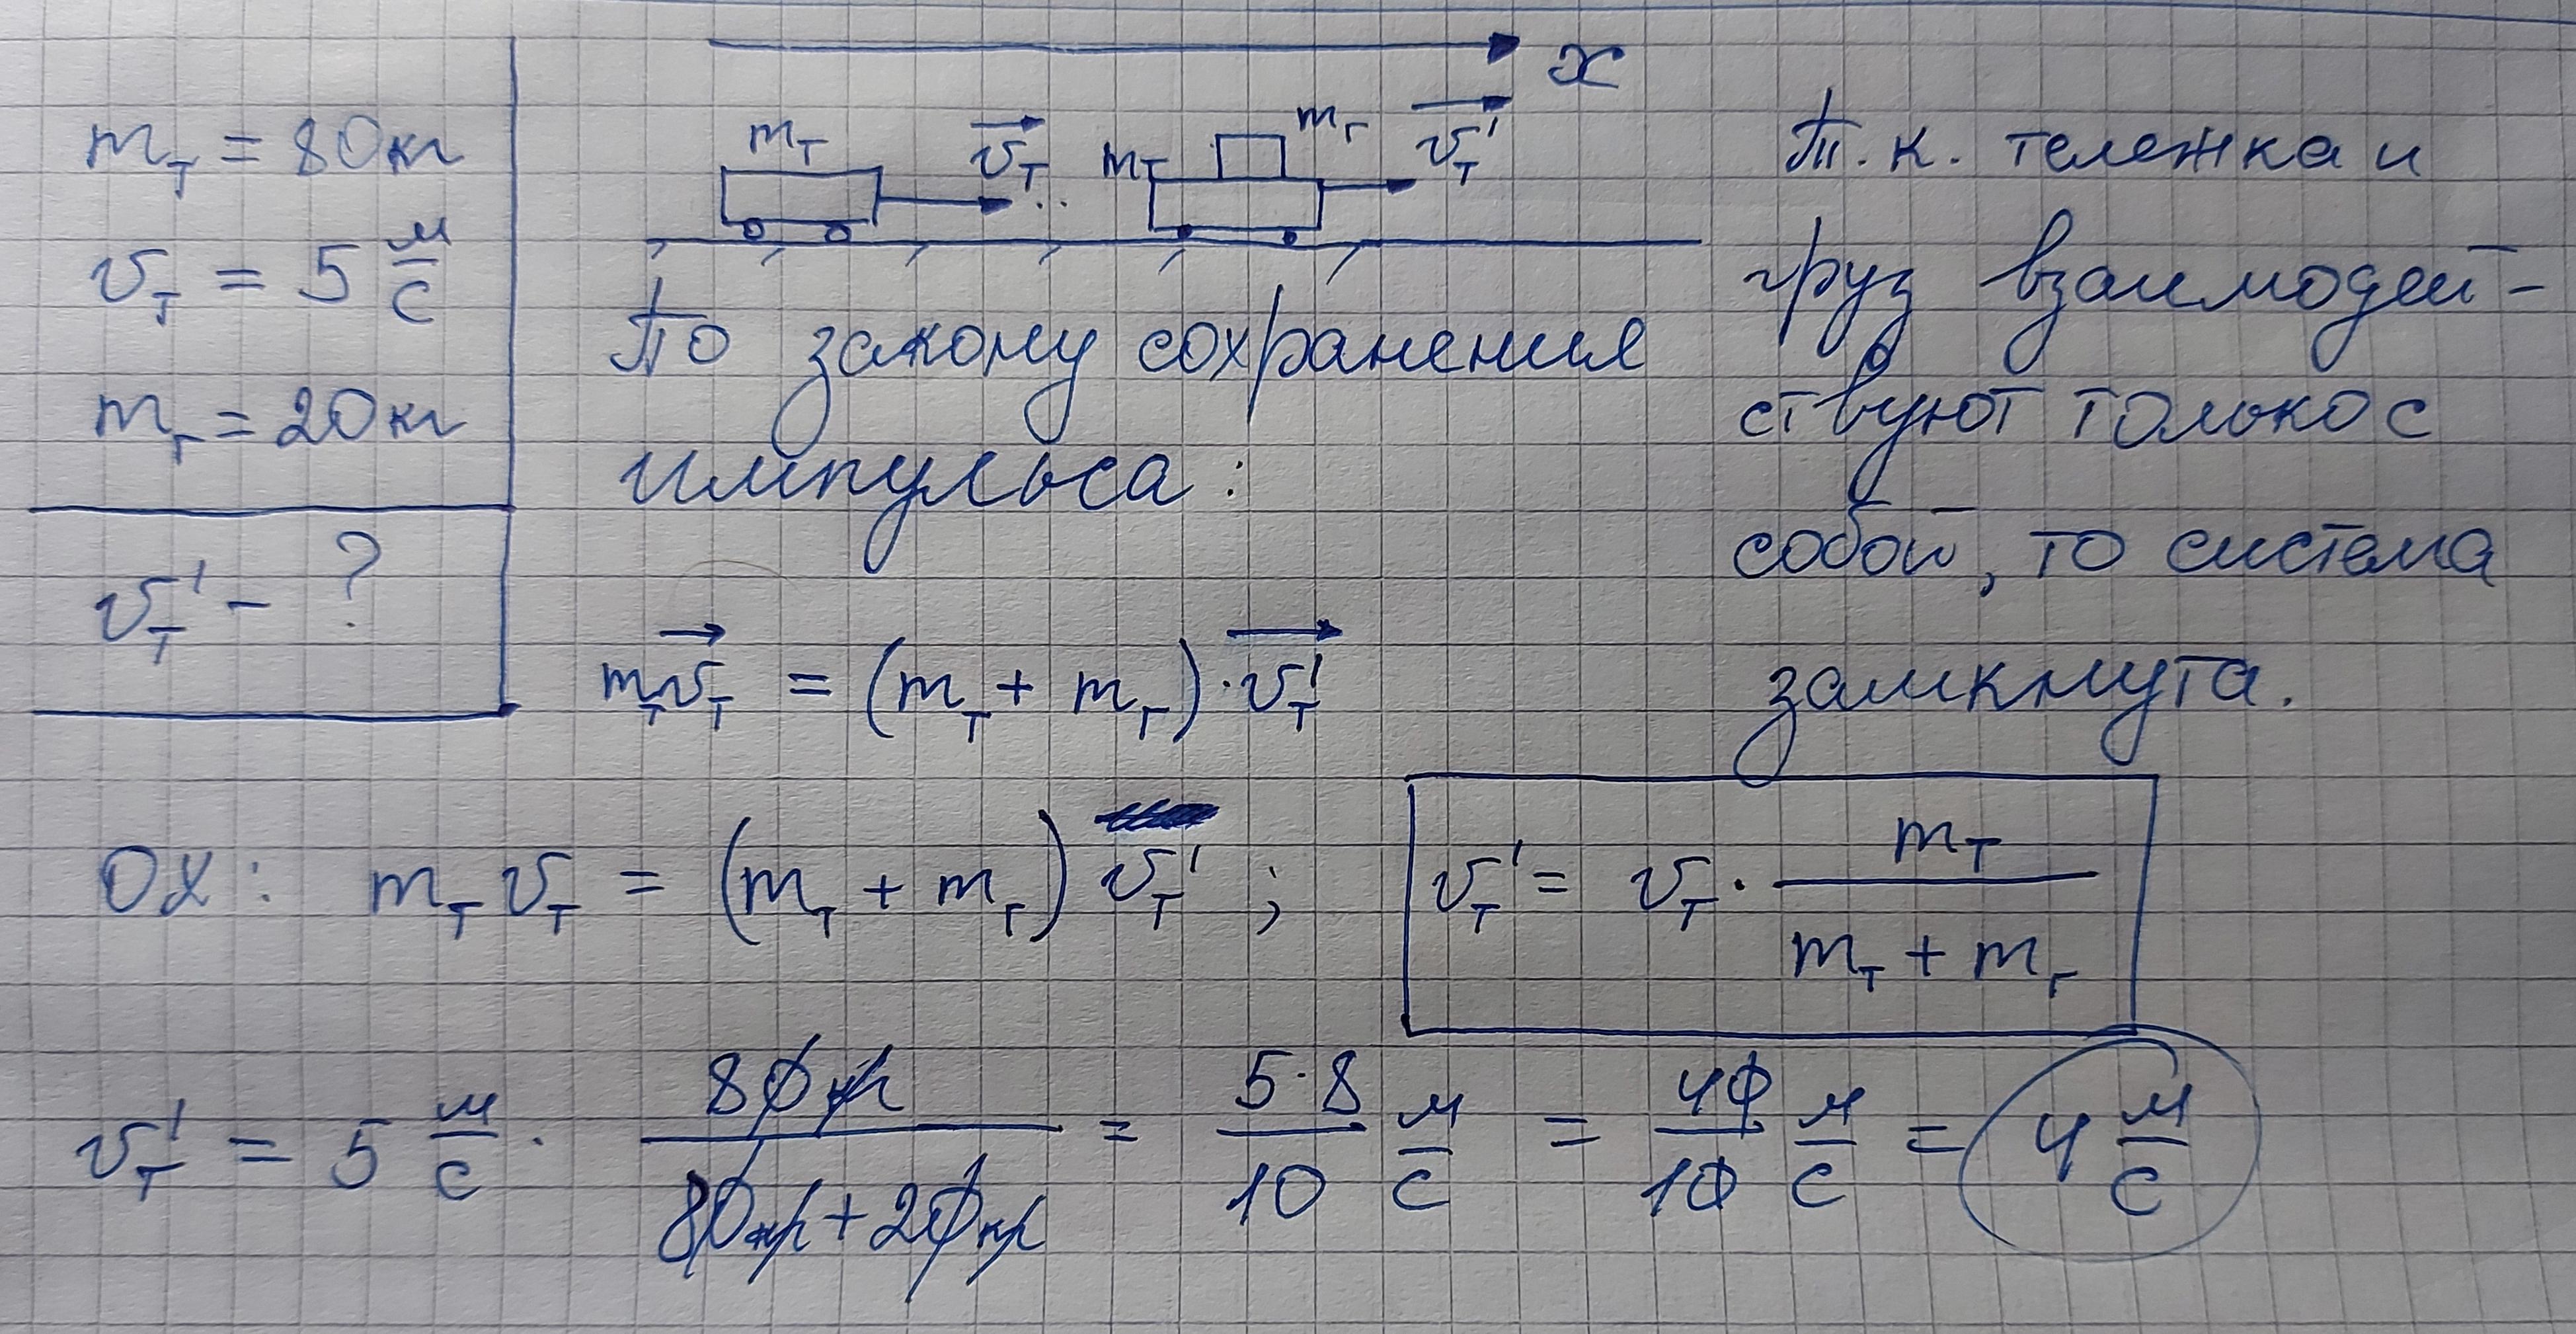 x
mт = 80 кг
vт = 5 м/с
mг = 20 кг
vт' - ?
mт vт mт mг vт'
По закону сохранения
импульса:
Т.к. тележка и
груз взаимодей-
ствуют только с
собой, то система
замкнута.
mтvт = (mт + mг) · vт'
OX: mт vт = (mт + mг) vт' ; vт' = vт · mт / (mт + mг)
vт' = 5 м/с · 80 кг / (80 кг + 20 кг) = 5·8/10 м/с = 40/10 м/с = 4 м/с